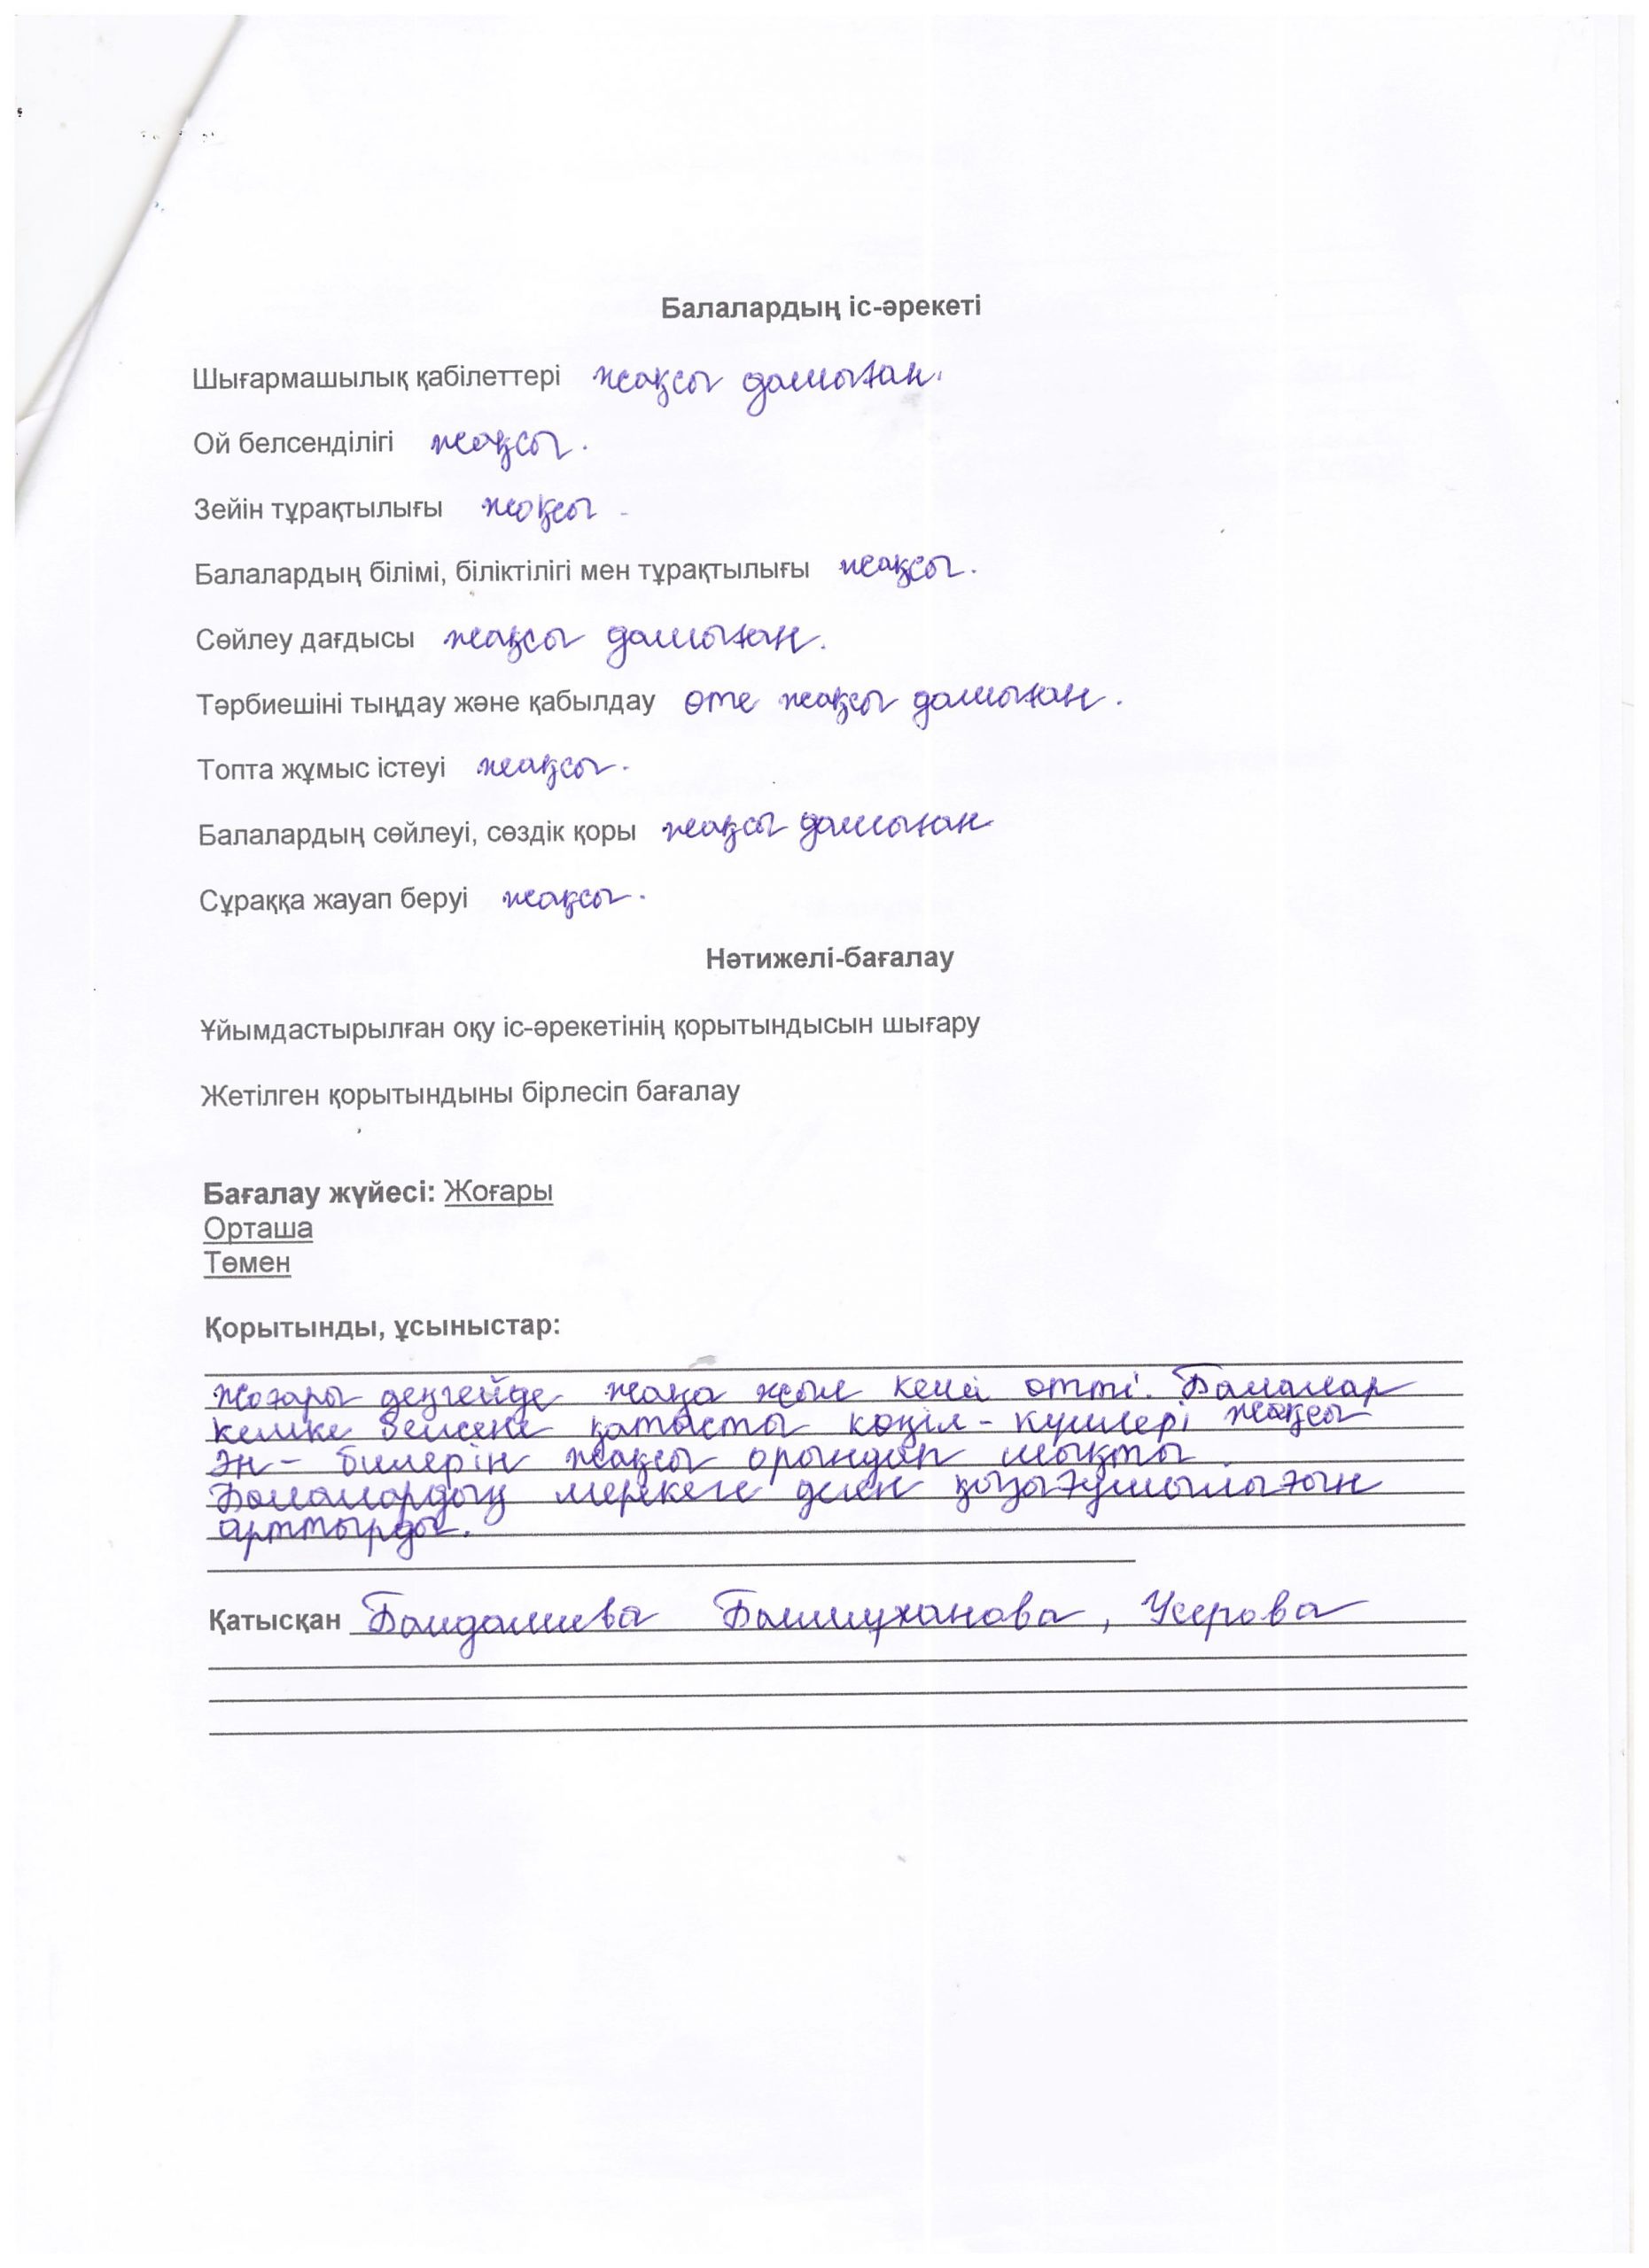 Балалардың іс-әрекеті
Шығармашылық қабілеттері жақсы дамыған.
Ой белсенділігі жақсы.
Зейін тұрақтылығы жақсы
Балалардың білімі, біліктілігі мен тұрақтылығы жақсы.
Сөйлеу дағдысы жақсы дамыған.
Тәрбиешіні тыңдау және қабылдау өте жақсы дамыған.
Топта жұмыс істеуі жақсы.
Балалардың сөйлеуі, сөздік қоры жақсы дамыған
Сұраққа жауап беруі жақсы.
Нәтижелі-бағалау
Ұйымдастырылған оқу іс-әрекетінің қорытындысын шығару
Жетілген қорытындыны бірлесіп бағалау
Бағалау жүйесі: Жоғары
Орташа
Төмен
Қорытынды, ұсыныстар:
Жоғары деңгейде жаңа жыл кеші өтті. Балалар
кешке белсене қатысты көңіл-күйлері жақсы
Ән-билерін жақсы орындап шықты.
Балалардың мерекеге деген қызығушылығын
арттырды.
Қатысқан Башмуханова, Усерова